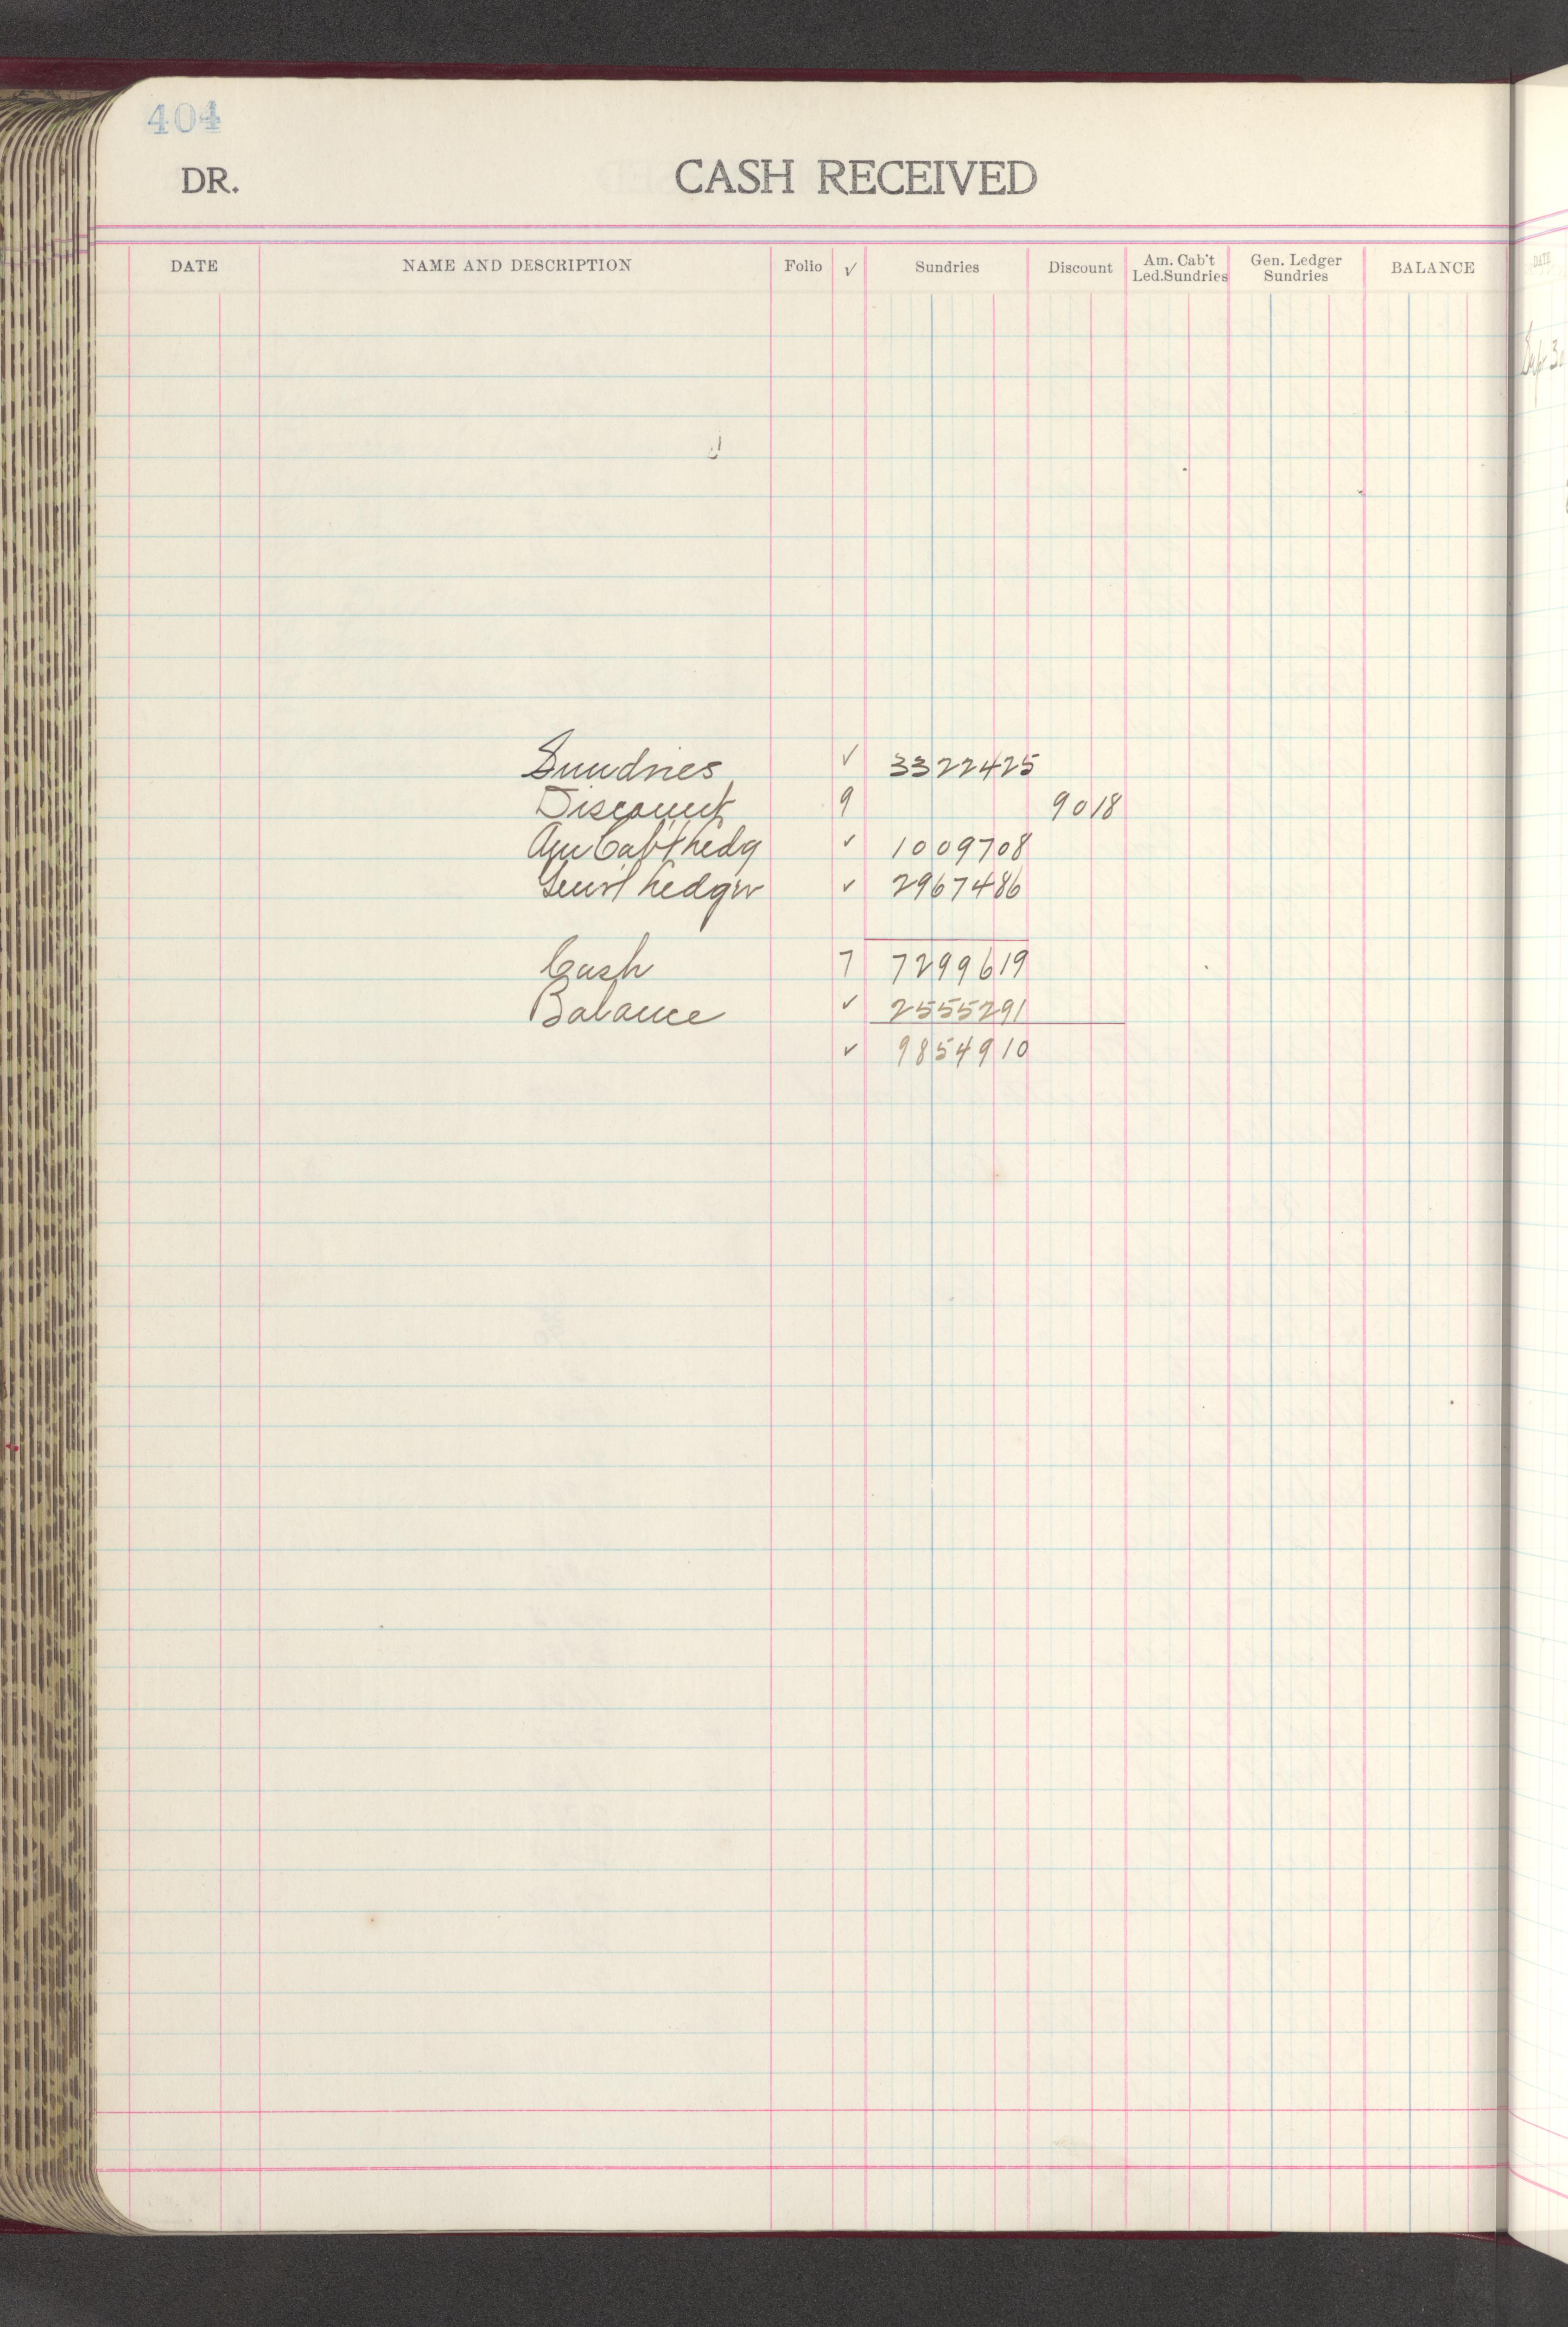 404
DR. CASH RECEIVED
DATE NAME AND DESCRIPTION Folio √ Sundries Discount Am. Cab't Led.Sundries Gen. Ledger Sundries BALANCE
Sundries √ 33224 25
Discount 9 90 18
Am Cab't Ledg √ 10097 08
Gen'l Ledger √ 29674 86
Cash 7 72996 19
Balance √ 25552 91
√ 98549 10